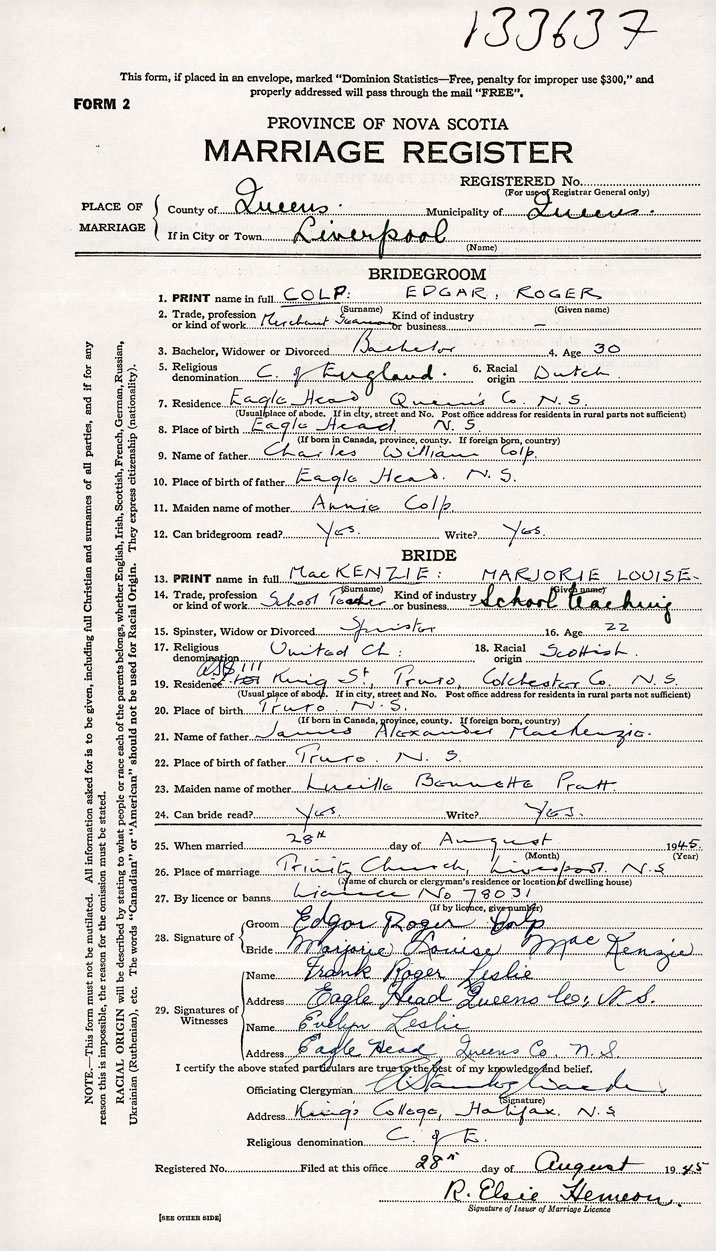 133637
This form, if placed in an envelope, marked "Dominion Statistics—Free, penalty for improper use $300," and
properly addressed will pass through the mail "FREE".
FORM 2
PROVINCE OF NOVA SCOTIA
MARRIAGE REGISTER
REGISTERED No.
(For use of Registrar General only)
PLACE OF MARRIAGE
County of Queens. Municipality of Queens.
If in City or Town Liverpool
(Name)
BRIDEGROOM
1. PRINT name in full COLP: EDGAR, ROGER
(Surname) (Given name)
2. Trade, profession or kind of work Merchant Seaman Kind of industry or business —
3. Bachelor, Widower or Divorced Bachelor 4. Age 30
5. Religious denomination C. of England. 6. Racial origin Dutch.
7. Residence Eagle Head Queen's Co. N.S.
(Usual place of abode. If in city, street and No. Post office address for residents in rural parts not sufficient)
8. Place of birth Eagle Head N.S.
(If born in Canada, province, county. If foreign born, country)
9. Name of father Charles William Colp.
10. Place of birth of father Eagle Head. N.S.
11. Maiden name of mother Annie Colp.
12. Can bridegroom read? Yes. Write? Yes.
BRIDE
13. PRINT name in full MacKENZIE: MARJORIE LOUISE-
(Surname) (Given name)
14. Trade, profession or kind of work School Teacher Kind of industry or business School teaching
15. Spinster, Widow or Divorced Spinster 16. Age 22
17. Religious denomination United Ch: 18. Racial origin Scottish.
19. Residence 111 King St, Truro, Colchester Co. N.S.
(Usual place of abode. If in city, street and No. Post office address for residents in rural parts not sufficient)
20. Place of birth Truro. N.S.
(If born in Canada, province, county. If foreign born, country)
21. Name of father James Alexander Mackenzie.
22. Place of birth of father Truro. N.S.
23. Maiden name of mother Pratt
24. Can bride read? Yes. Write? Yes.
25. When married 28th day of August 1945.
(Month) (Year)
26. Place of marriage Trinity Church, Liverpool. N.S
(Name of church or clergyman's residence or location of dwelling house)
27. By licence or banns Licence No 78031
(If by licence, give number)
28. Signature of
Groom Edgar Roger Colp
Bride Marjorie Louise MacKenzie
29. Signatures of Witnesses
Name Frank Roger Leslie
Address Eagle Head Queens Co, N.S.
Name Evelyn Leslie
Address Eagle Head Queens Co, N.S.
I certify the above stated particulars are true to the best of my knowledge and belief.
Officiating Clergyman
(Signature)
Address King's College, Halifax. N.S
Religious denomination C. of E.
Registered No. Filed at this office 28th day of August 1945
R. Elsie Hemeon.
Signature of Issuer of Marriage Licence
[SEE OTHER SIDE]
NOTE.—This form must not be mutilated. All information asked for is to be given, including full Christian and surnames of all parties, and if for any
reason this is impossible, the reason for the omission must be stated.
RACIAL ORIGIN will be described by stating to what people or race each of the parents belongs, whether English, Irish, Scottish, French, German, Russian,
Ukrainian (Ruthenian), etc. The words "Canadian" or "American" should not be used for Racial Origin. They express citizenship (nationality).